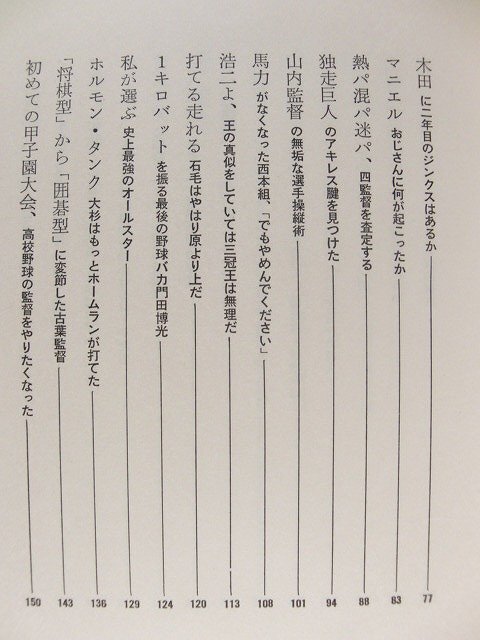 木田 に二年目のジンクスはあるか 77
マニエル おじさんに何が起こったか 83
熱パ混パ迷パ、四監督を査定する 88
独走巨人 のアキレス腱を見つけた 94
山内監督 の無垢な選手操縦術 101
馬力 がなくなった西本組、「でもやめんでください」 108
浩二よ、王の真似をしていては三冠王は無理だ 113
打てる走れる 石毛はやはり原より上だ 120
1キロバット を振る最後の野球バカ門田博光 124
私が選ぶ 史上最強のオールスター 129
ホルモン・タンク 大杉はもっとホームランが打てた 136
「将棋型」から「囲碁型」に変節した古葉監督 143
初めての甲子園大会、高校野球の監督をやりたくなった 150